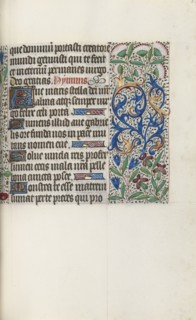 que dominum portasti creatorē
mundi genuisti qui te fecit
et in eternum permanes virgo
Deo gracias. Hymnus
Ave maris stella dei m̄r
alma atq; semper vir
go felix celi porta
Sumens illud ave gabrie
lis ore funda nos in pace mu
tans nomen eve.
Solve vincla reis profer
lumen cecis mala nr̄a pelle
bona cuncta posce.
Monstra te esse matrem
sumat per te preces qui pro